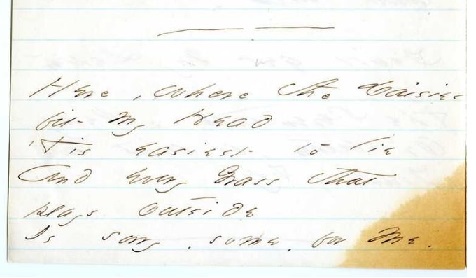 Here, where the Daisies
fit my Head
'Tis easiest to lie
And every Grass that
plays outside
Is sorry, some, for me.